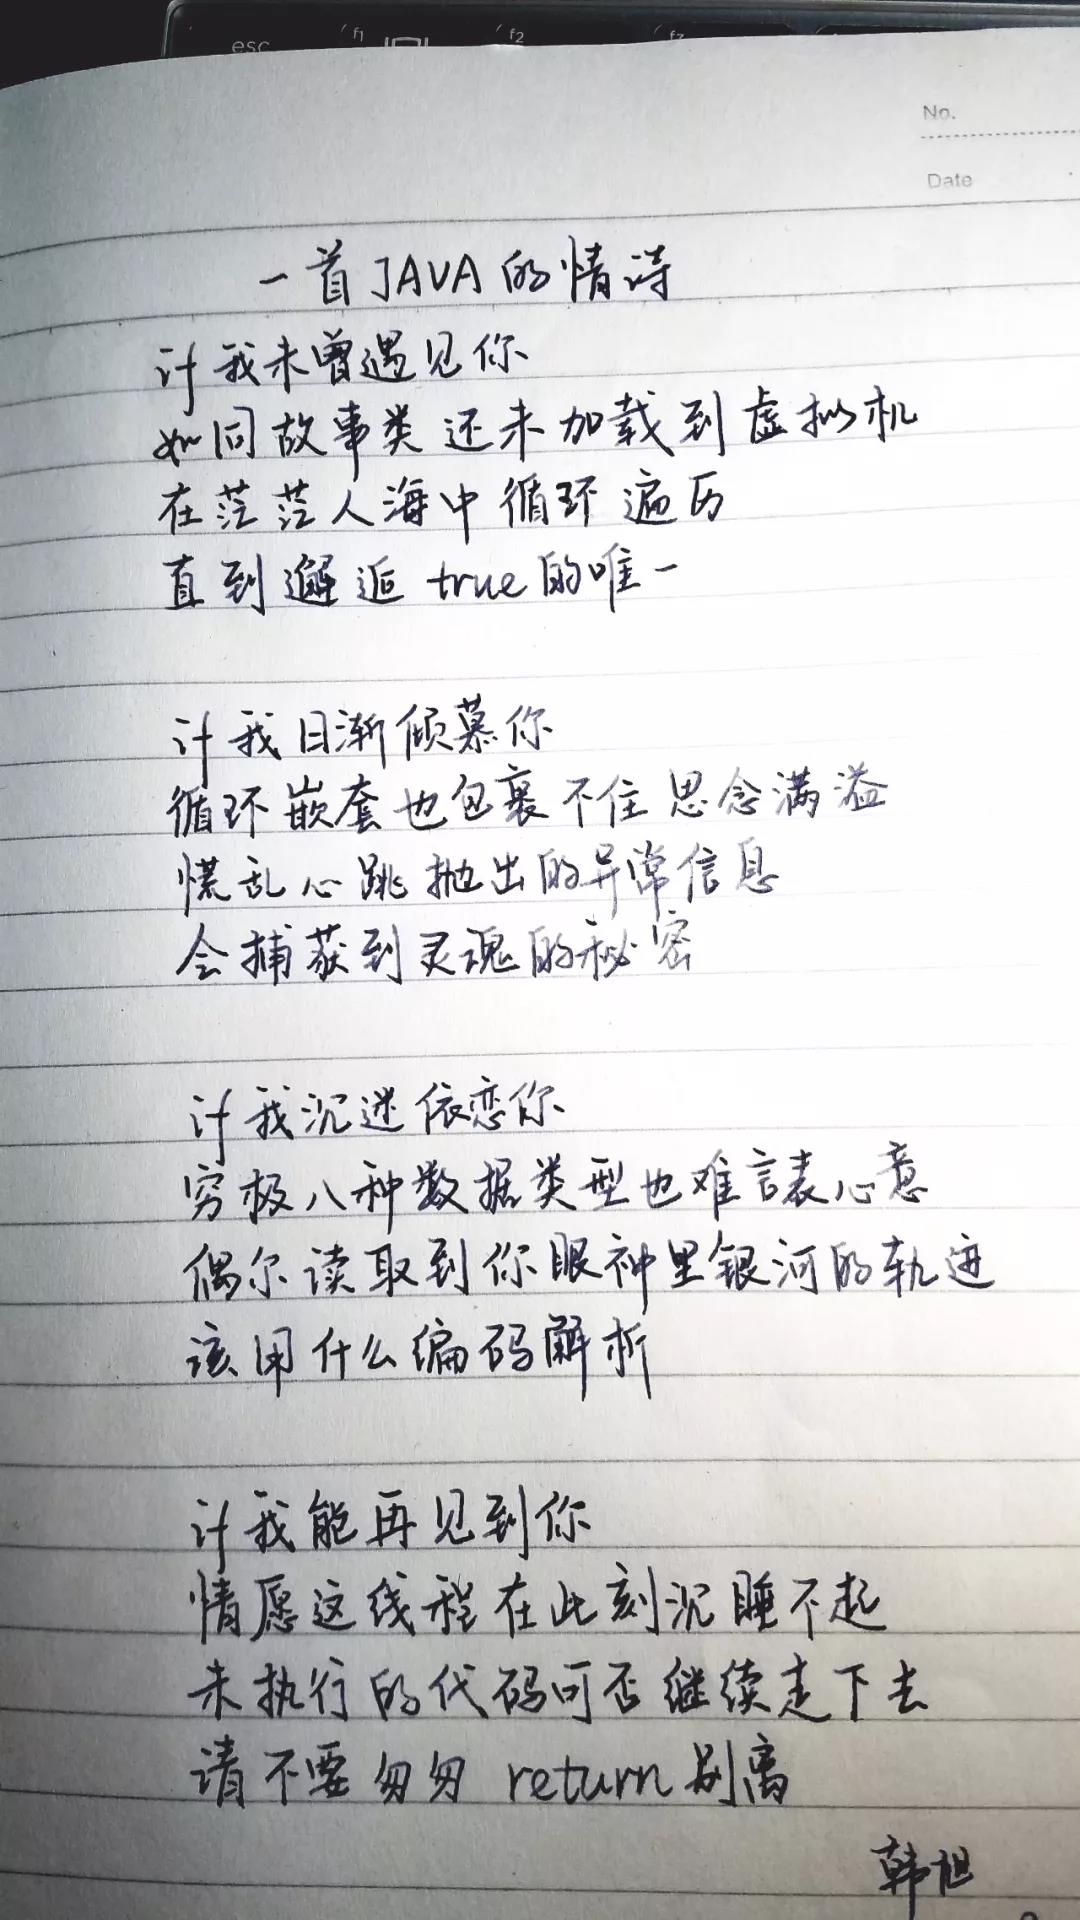 esc f1 f2
No.
Date
一首JAVA的情诗
if我未曾遇见你
如同故事类还未加载到虚拟机
在茫茫人海中循环遍历
直到邂逅true的唯一
if我日渐倾慕你
循环嵌套也包裹不住思念满溢
慌乱心跳抛出的异常信息
会捕获到灵魂的秘密
if我沉迷依恋你
穷极八种数据类型也难言表心意
偶尔读取到你眼神里银河的轨迹
该用什么编码解析
if我能再见到你
情愿这线程在此刻沉睡不起
未执行的代码可否继续走下去
请不要匆匆return别离
韩旭